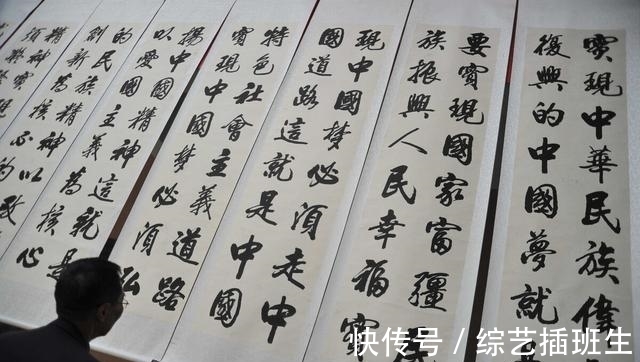 實現中華民族偉
復興的中國夢就
要實現國家富疆民
族振興人民幸福實
現中國梦必須走中
國道路這就是中國
特色社會主義道路
實現中國梦必須弘
揚中國精神這就是
以愛國主義為核心
的民族精神以改
快传号/综艺插班生